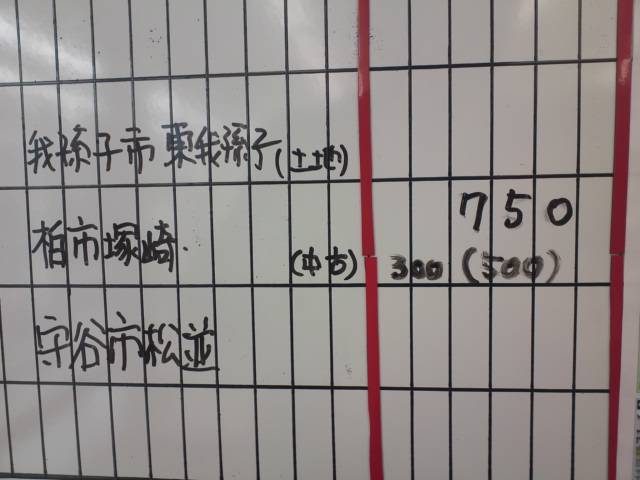 我孫子市東我孫子(土地)
750
柏市塚崎 (中古) 300 (500)
守谷市松並